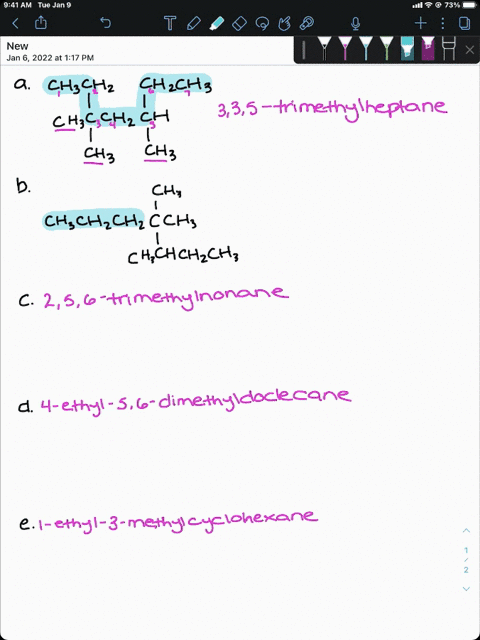 9:41 AM Tue Jan 9
73%
New
Jan 6, 2022 at 1:17 PM
a. CH3CH2 CH2CH3
1 2 6 7
CH3CCH2CH
3 4 5
CH3 CH3
3,3,5-trimethylheptane
b. CH3
CH3CH2CH2CCH3
CH3CHCH2CH3
c. 2,5,6-trimethylnonane
d. 4-ethyl-5,6-dimethyldodecane
e. 1-ethyl-3-methylcyclohexane
1
/
2